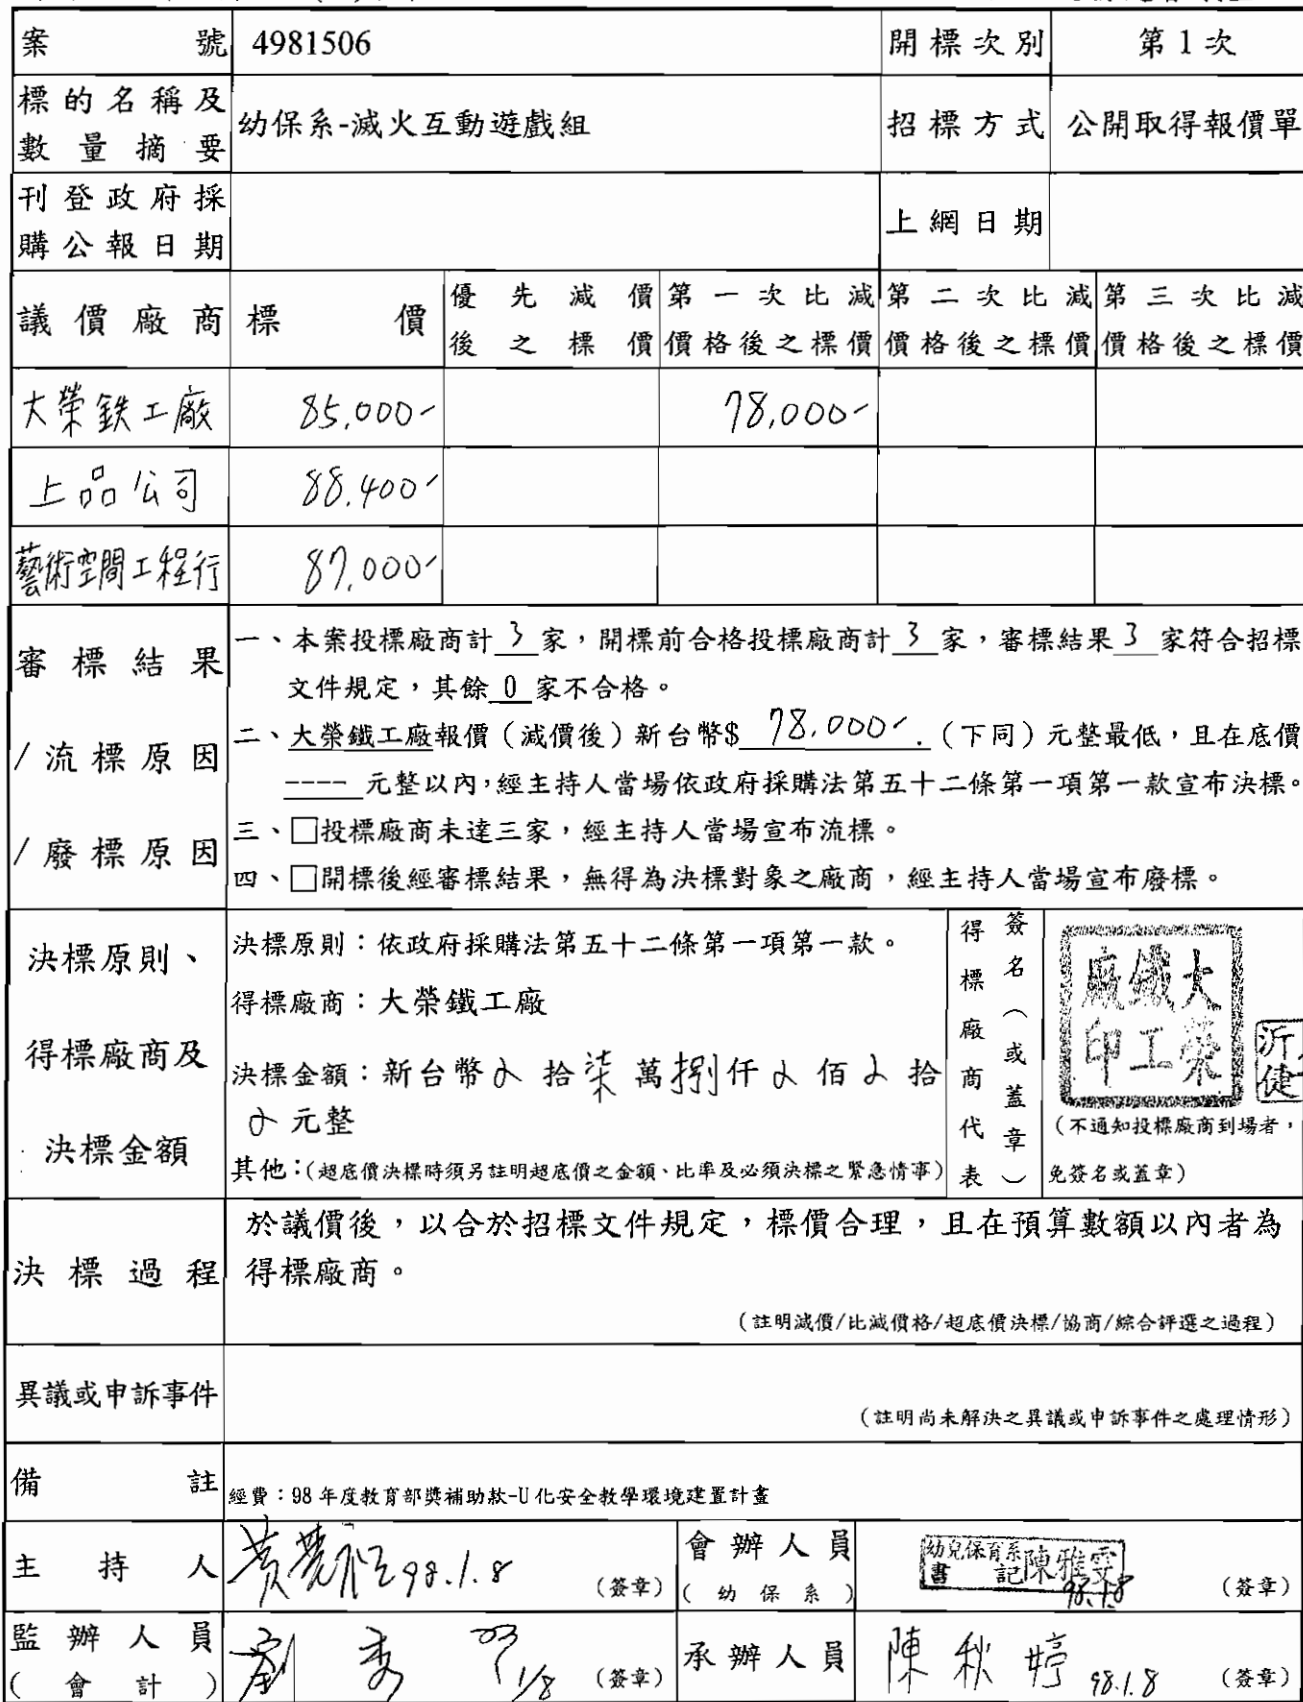 案號 4981506 開標次別 第1次
標的名稱及
數量摘要 幼保系-滅火互動遊戲組 招標方式 公開取得報價單
刊登政府採
購公報日期 上網日期
議價廠商 標價 優先減價 第一次比減 第二次比減 第三次比減
後之標價 價格後之標價 價格後之標價 價格後之標價
大榮鉄工廠 85,000- 78,000-
上品公司 88,400-
藝術空間工程行 87,000-
審標結果
/流標原因
/廢標原因
一、本案投標廠商計 3 家,開標前合格投標廠商計 3 家,審標結果 3 家符合招標
文件規定,其餘 0 家不合格。
二、大榮鐵工廠報價(減價後)新台幣$ 78,000-.(下同)元整最低,且在底價
---- 元整以內,經主持人當場依政府採購法第五十二條第一項第一款宣布決標。
三、□投標廠商未達三家,經主持人當場宣布流標。
四、□開標後經審標結果,無得為決標對象之廠商,經主持人當場宣布廢標。
決標原則、
得標廠商及
決標金額
決標原則:依政府採購法第五十二條第一項第一款。
得標廠商:大榮鐵工廠
決標金額:新台幣 拾柒萬捌仟 佰 拾
元整
其他:(超底價決標時須另註明超底價之金額、比率及必須決標之緊急情事)
得標廠商代表
簽名(或蓋章)
大榮
鐵工
廠印
(不通知投標廠商到場者,
免簽名或蓋章)
決標過程
於議價後,以合於招標文件規定,標價合理,且在預算數額以內者為
得標廠商。
(註明減價/比減價格/超底價決標/協商/綜合評選之過程)
異議或申訴事件
(註明尚未解決之異議或申訴事件之處理情形)
備註 經費:98年度教育部獎補助款-U化安全教學環境建置計畫
主持人 98.1.8 (簽章)
會辦人員
(幼保系)
幼兒保育系
書記 陳雅雯
98.1.8 (簽章)
監辦人員
(會計) 劉秀 1/8 (簽章)
承辦人員 陳秋婷 98.1.8 (簽章)